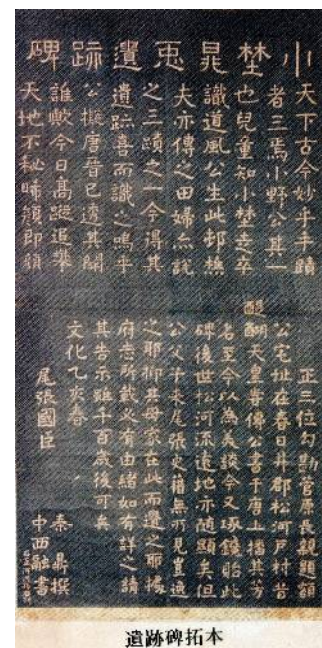 小埜晁𢘑遺跡碑
天下古今妙乎手蹟
者三焉小野公其一
也兒童知小埜走卒
識道風公生此邨樵
夫亦傳之田婦亦説
之三蹟之一今得其
遺跡喜而識之嗚乎
公擬唐晉已其閫
誰歟今日高蹤追攀
天地不秘晞顔即顔
正三位勾勘菅原長親題額
公宅址在春日井郡松河戸村昔
醍醐天皇寄傳公書于唐土播其芳
名至今以為美談今又琢鏡貽此
碑後世松河流遠地亦随顕矣但
公父子来尾張史籍無所見豈適
之耶抑其母家在此而還之耶據
府志所載必有由緒如有詳之請
其告示雖千百歳後可矣
文化乙亥春
尾張國臣
秦鼎撰
中西融書
遺跡碑拓本